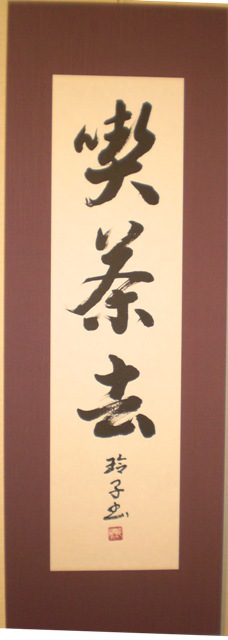 喫茶去
玲子書